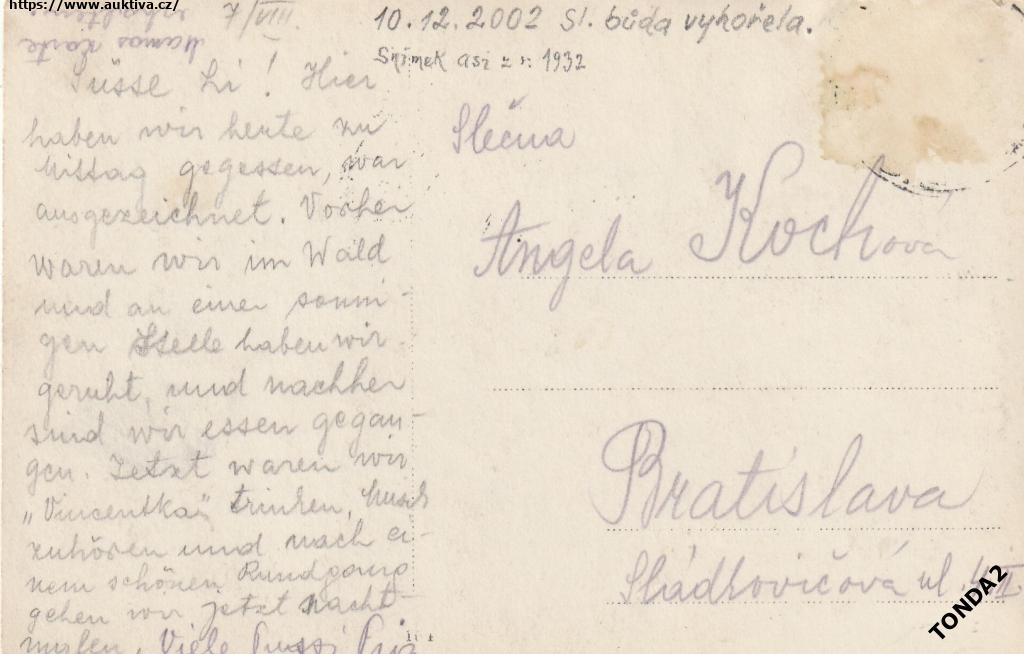 https://www.auktiva.cz/
7/VIII.
10.12.2002 Sl. búda vyhořela.
Snímek asi z r. 1932
Mamas Karte
Süsse Li! Hier
haben wir heute zu
Mittag gegessen, war
ausgezeichnet. Vorher
waren wir im Wald
und an einer sonni-
gen Stelle haben wir
geruht, und nachher
sind wir essen gegan-
gen. Jetzt waren wir
„Vincentka" trinken, Musik
zuhören und nach ei-
nem schönen Rundgang
gehen wir jetzt nacht-
malen. Viele Pussi
Slečna
Angela Kochova
Bratislava
Sládkovičová ul.
TONDA2